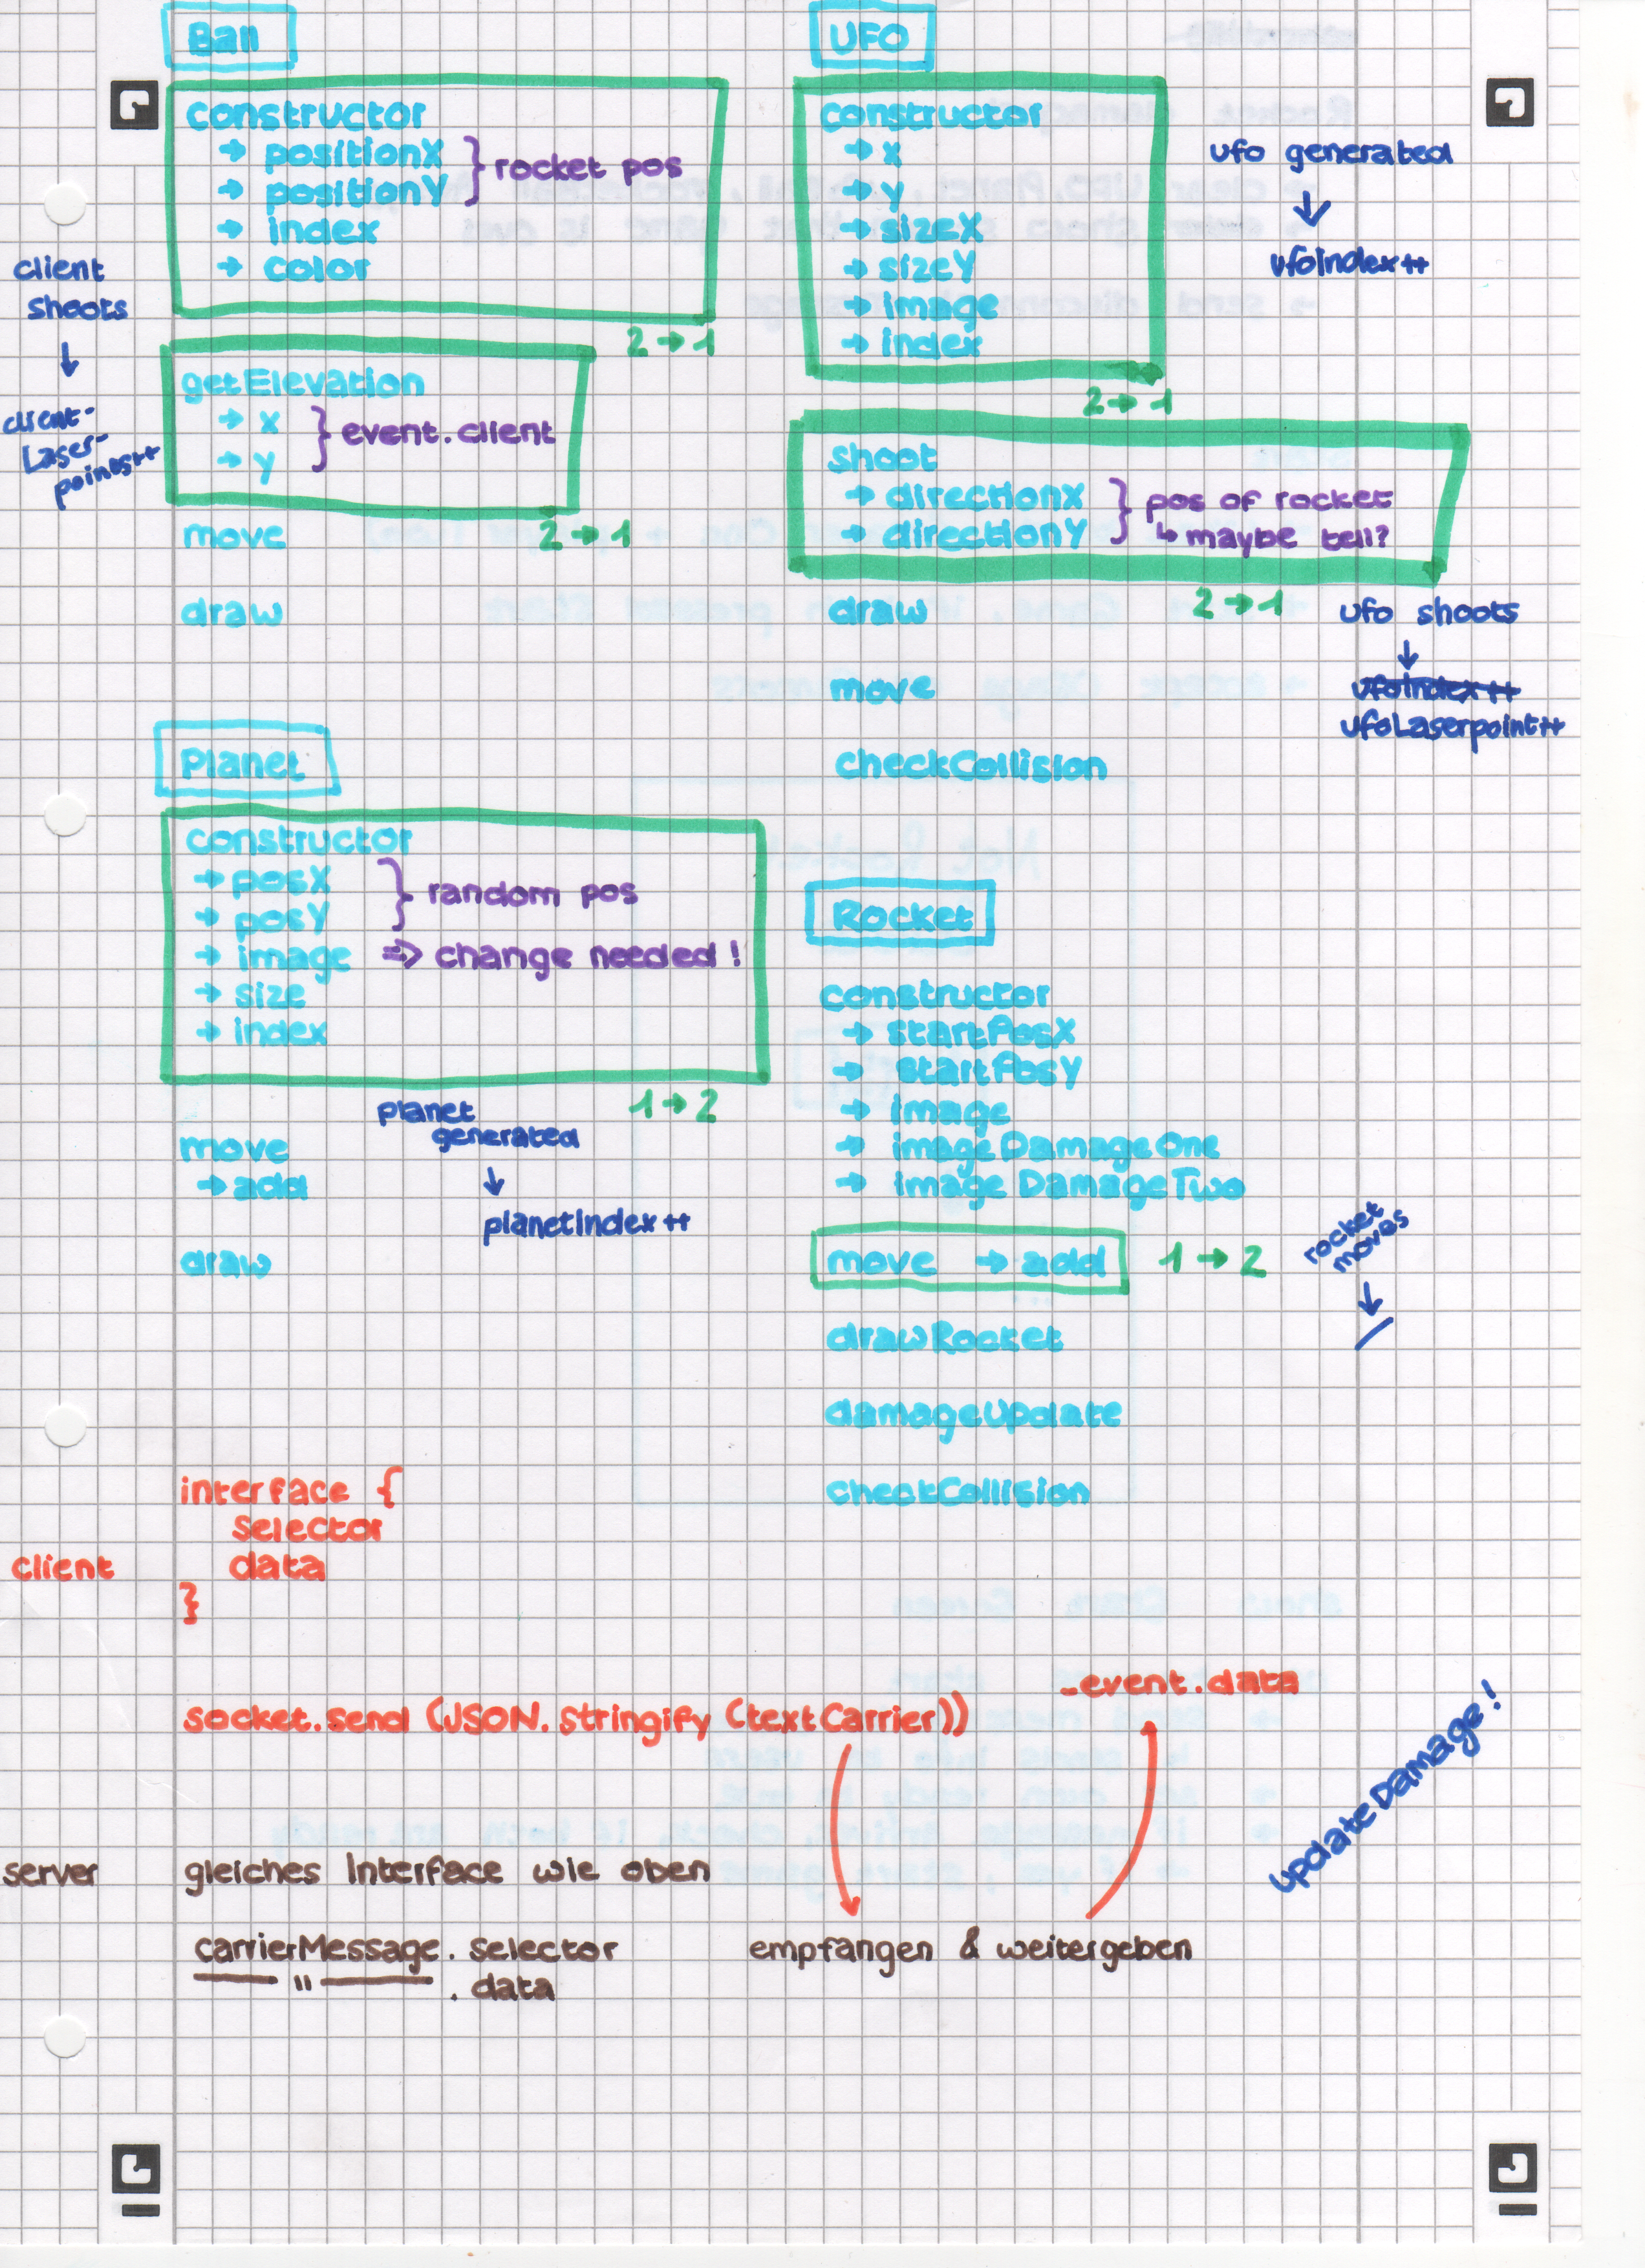 Ball
constructor
→ positionX
→ positionY
} rocket pos
→ index
→ color
2 → 1
client
shoots
↓
client-
Laser-
points++
getElevation
→ x
→ y
} event.client
2 → 1
move
draw
UFO
constructor
→ x
→ y
→ sizeX
→ sizeY
→ image
→ index
2 → 1
ufo generated
↓
ufoIndex++
shoot
→ directionX
→ directionY
} pos of rocket
↳ maybe tell?
2 → 1
draw
move
checkCollision
ufo shoots
↓
ufoIndex++
ufoLaserpoint++
Planet
constructor
→ posX
→ posY
} random pos
→ image => change needed!
→ size
→ index
1 → 2
planet
generated
↓
planetIndex++
move
→ add
draw
Rocket
constructor
→ startPosX
→ startPosY
→ image
→ imageDamageOne
→ imageDamageTwo
move → add 1 → 2
rocket
moves
↓
/
drawRocket
damageUpdate
checkCollision
client
interface {
selector
data
}
socket.send (JSON.stringify (textCarrier))
_event.data
updateDamage!
server
gleiches Interface wie oben
carrierMessage. selector
" . data
empfangen & weitergeben